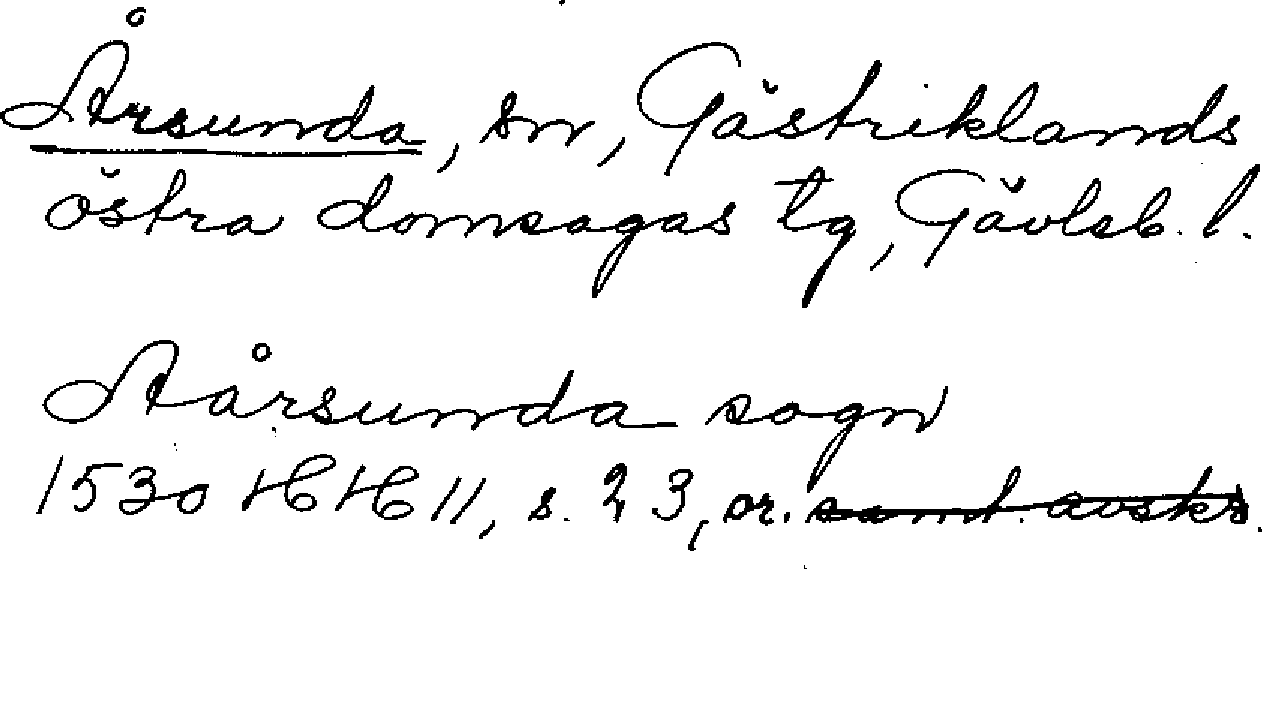 Årsunda, sn, Gästriklands
östra domsagas tg, Gävleb. l.
Aårsunda sogn
1530 HH 11, s. 23, or. samt. avskr.